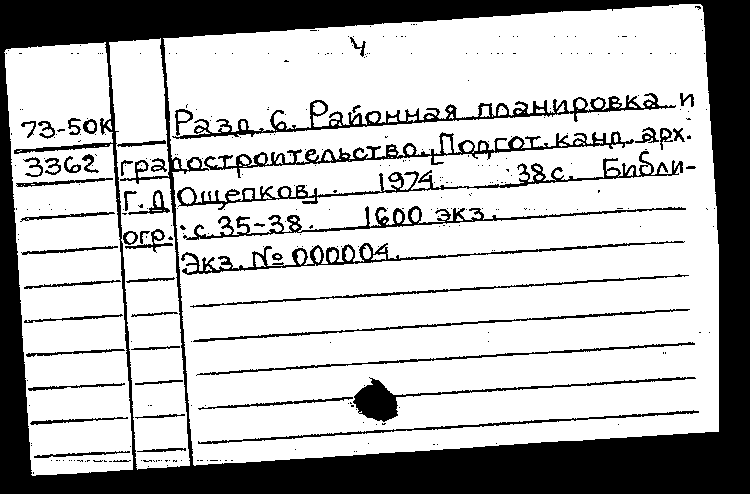 4
73-50К Разд. 6. Районная планировка и
3362 градостроительство. [Подгот. канд. арх.
Г. Д Ощепков]. 1974. 38с. Библи-
огр.: с 35-38. 1600 экз.
Экз. № 000004.